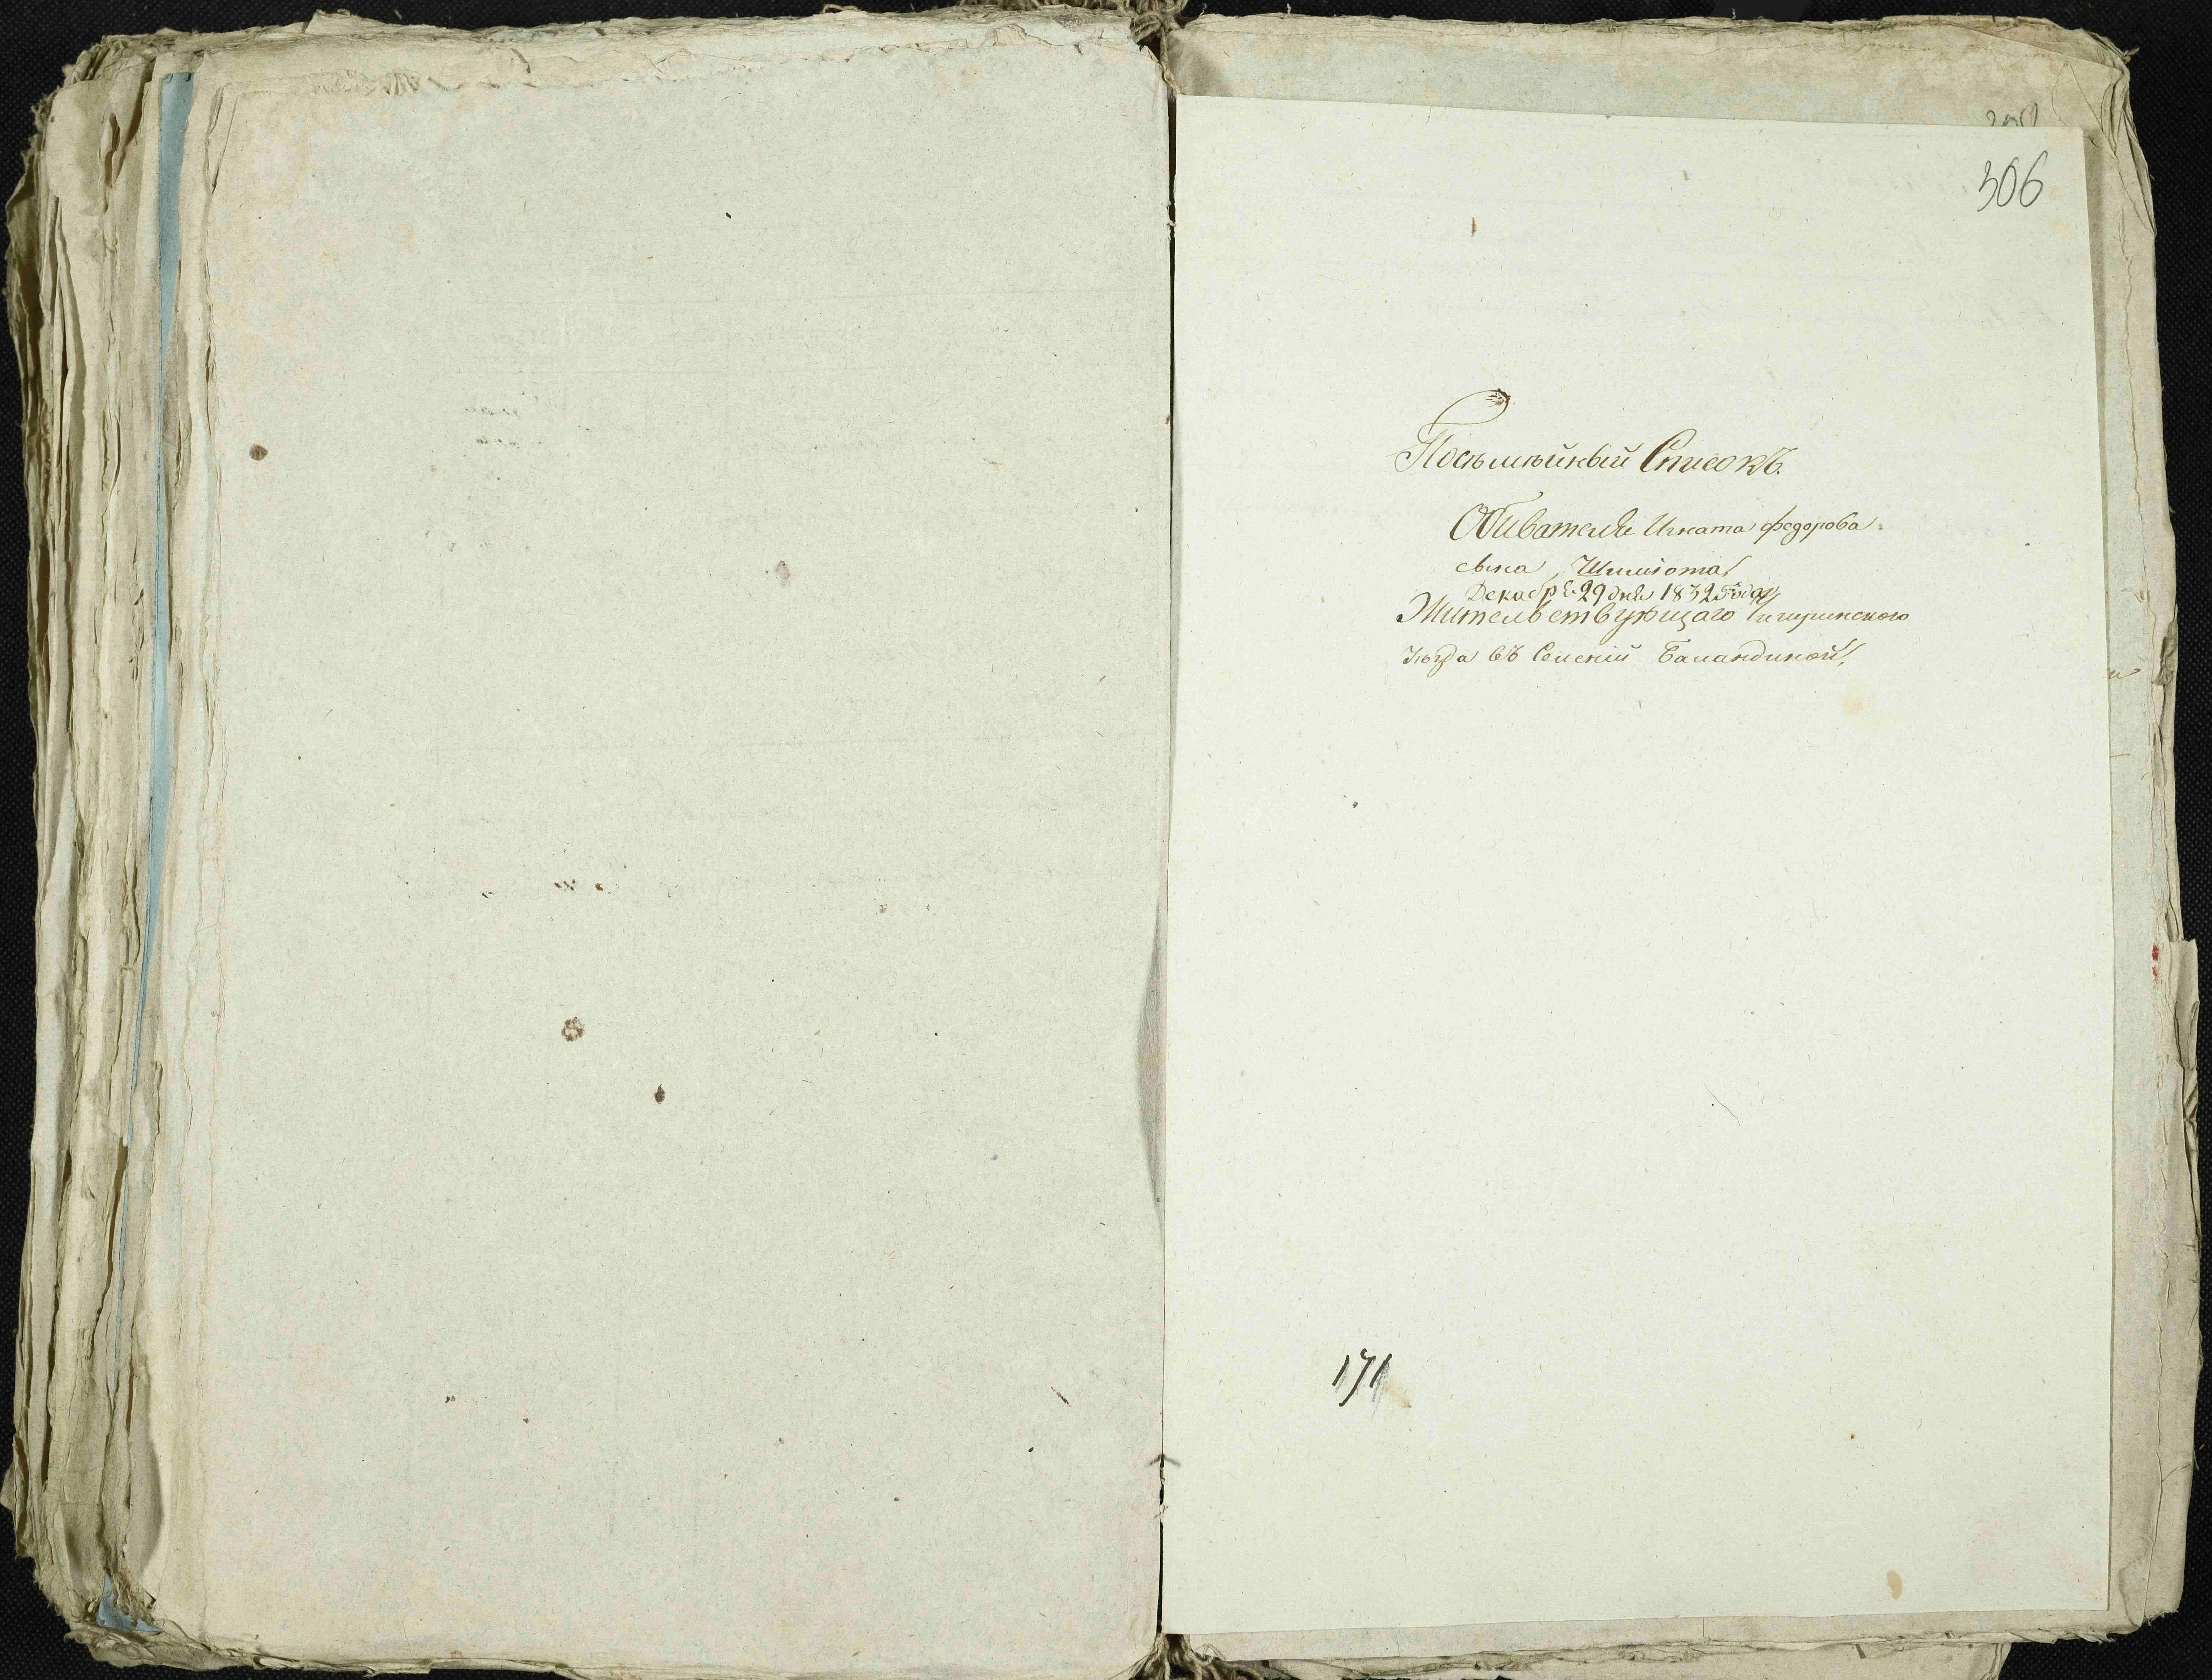 306
Посѣмѣйный Списокъ.
Обивателя Игната федорова
сына, Шклота
Декабря 29 дня 1832 Года
Жительствующаго Чигиринского
уезда въ Селеніи Баландиной
171